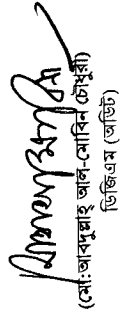 (মো: আবদুল্লাহ্ আল-মোবিন চৌধুরী)
ডিজিএম (অডিট)